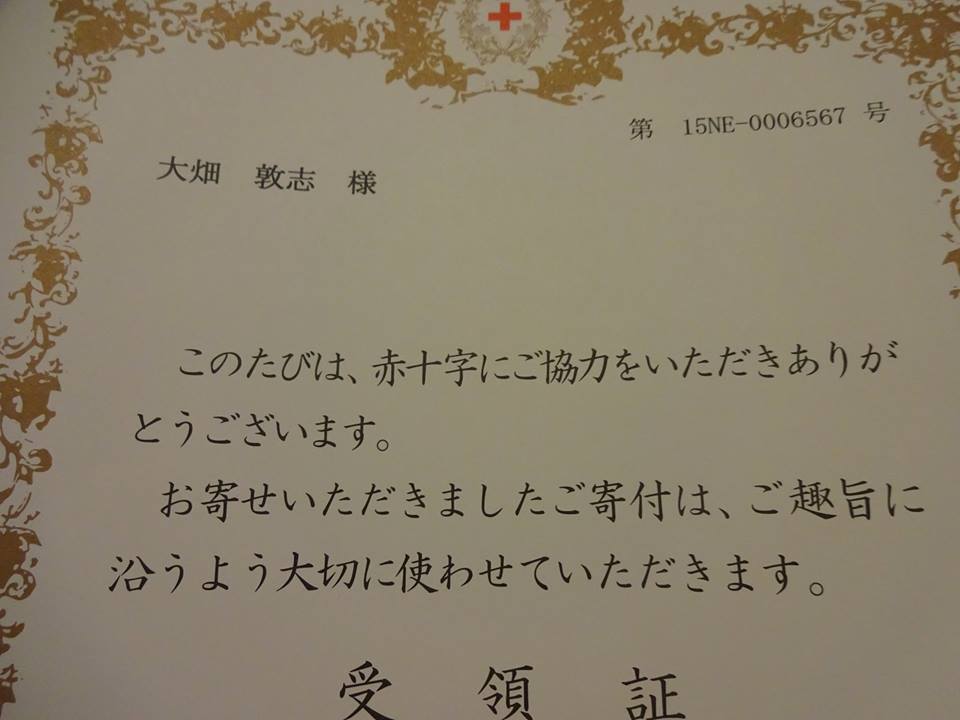 第 15NE-0006567 号
大畑 敦志 様
このたびは、赤十字にご協力をいただきありが
とうございます。
お寄せいただきましたご寄付は、ご趣旨に
沿うよう大切に使わせていただきます。
受領証